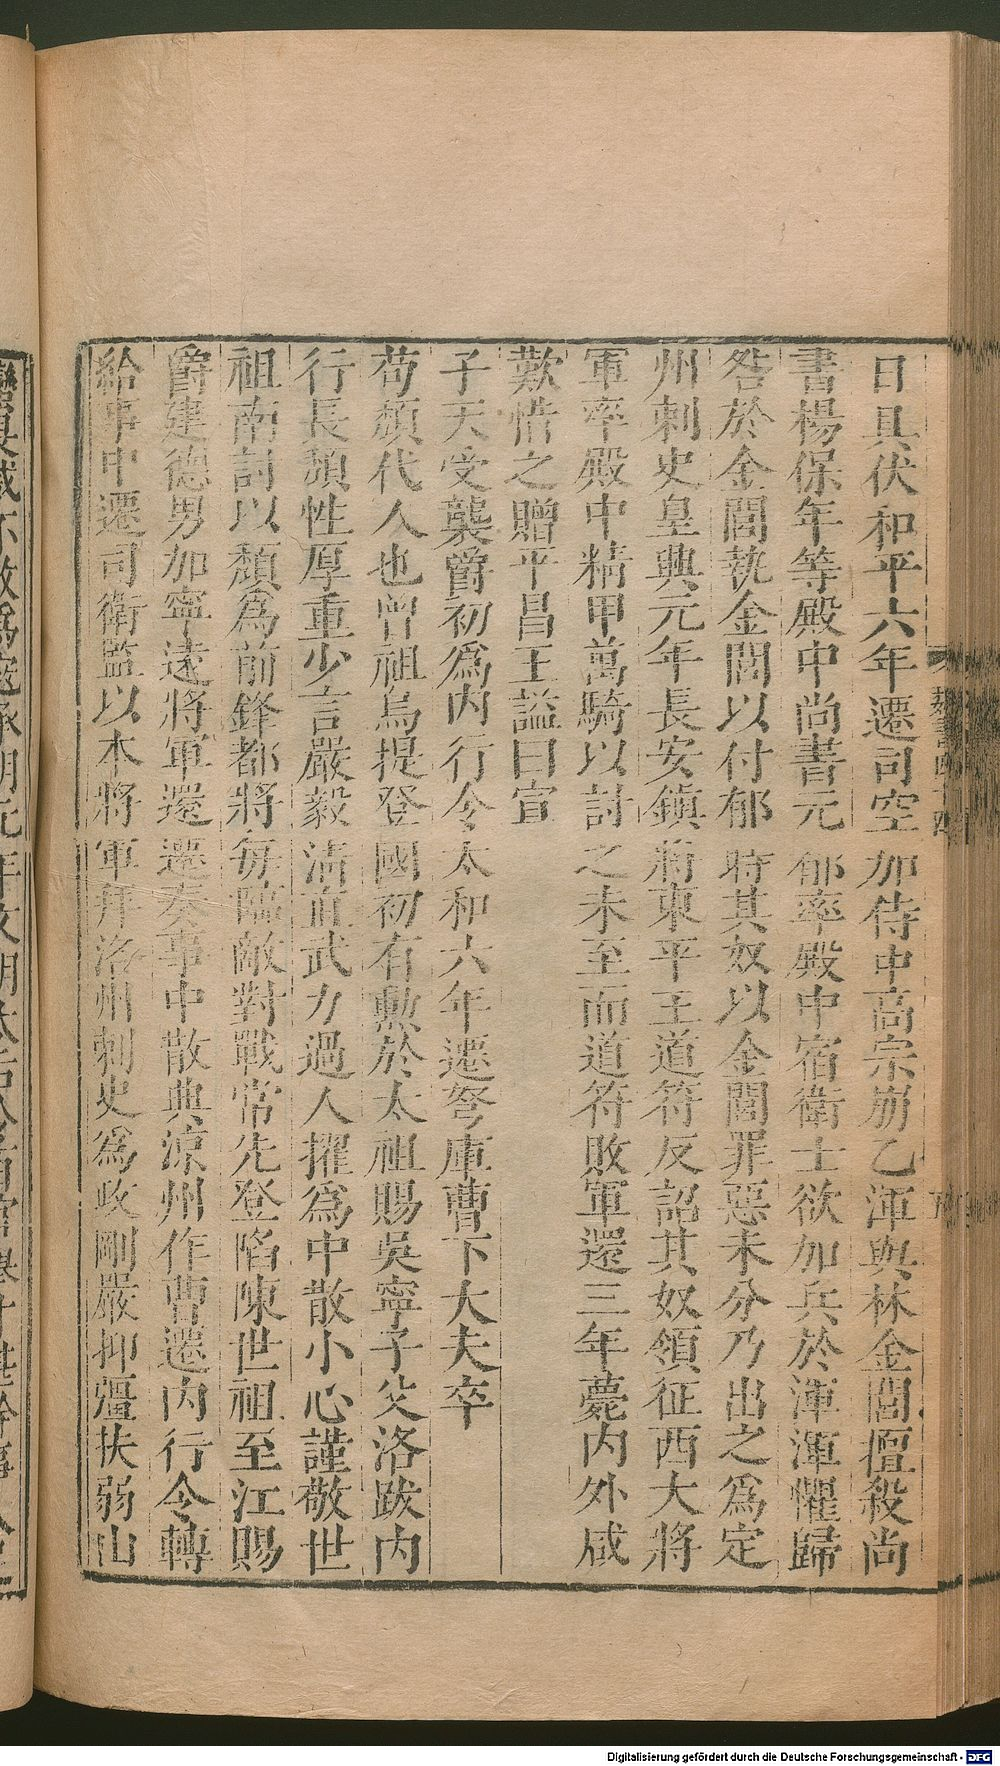 日具伏和平六年遷司空加侍中高宗崩乙渾與林金閭擅殺尚
書楊保年等殿中尚書元郁率殿中宿衛士欲加兵於渾渾懼歸
咎於金閭執金閭以付郁時其奴以金閭罪惡未分乃出之爲定
州刺史皇興元年長安鎮將東平王道符反詔其奴領征西大將
軍率殿中精甲萬騎以討之未至而道符敗軍還三年薨内外咸
歎惜之贈平昌王謚曰宣
子天受襲爵初爲内行令太和六年遷弩庫曹下大夫卒
苟頹代人也曾祖烏提登國初有勲於太祖賜吳寧子父洛跋内
行長頹性厚重少言嚴毅清直武力過人擢爲中散小心謹敬世
祖南討以頹爲前鋒都將每臨敵對戰常先登陷陳世祖至江賜
爵建德男加寧遠將軍還遷奏事中散典涼州作曹遷内行令轉
給事中遷司衛監以本將軍拜洛州刺史爲政剛嚴抑彊扶弱山
Digitalisierung gefördert durch die Deutsche Forschungsgemeinschaft - DFG